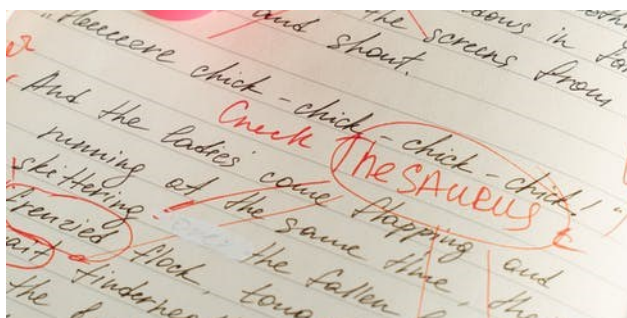 dows in
and shout. the screens from
"Heeeeere chick-chick-chick-chick!"
Check THESAURUS
And the ladies come flapping and
running at the same time, the
skittering. the fallen
frenzied flock,
the